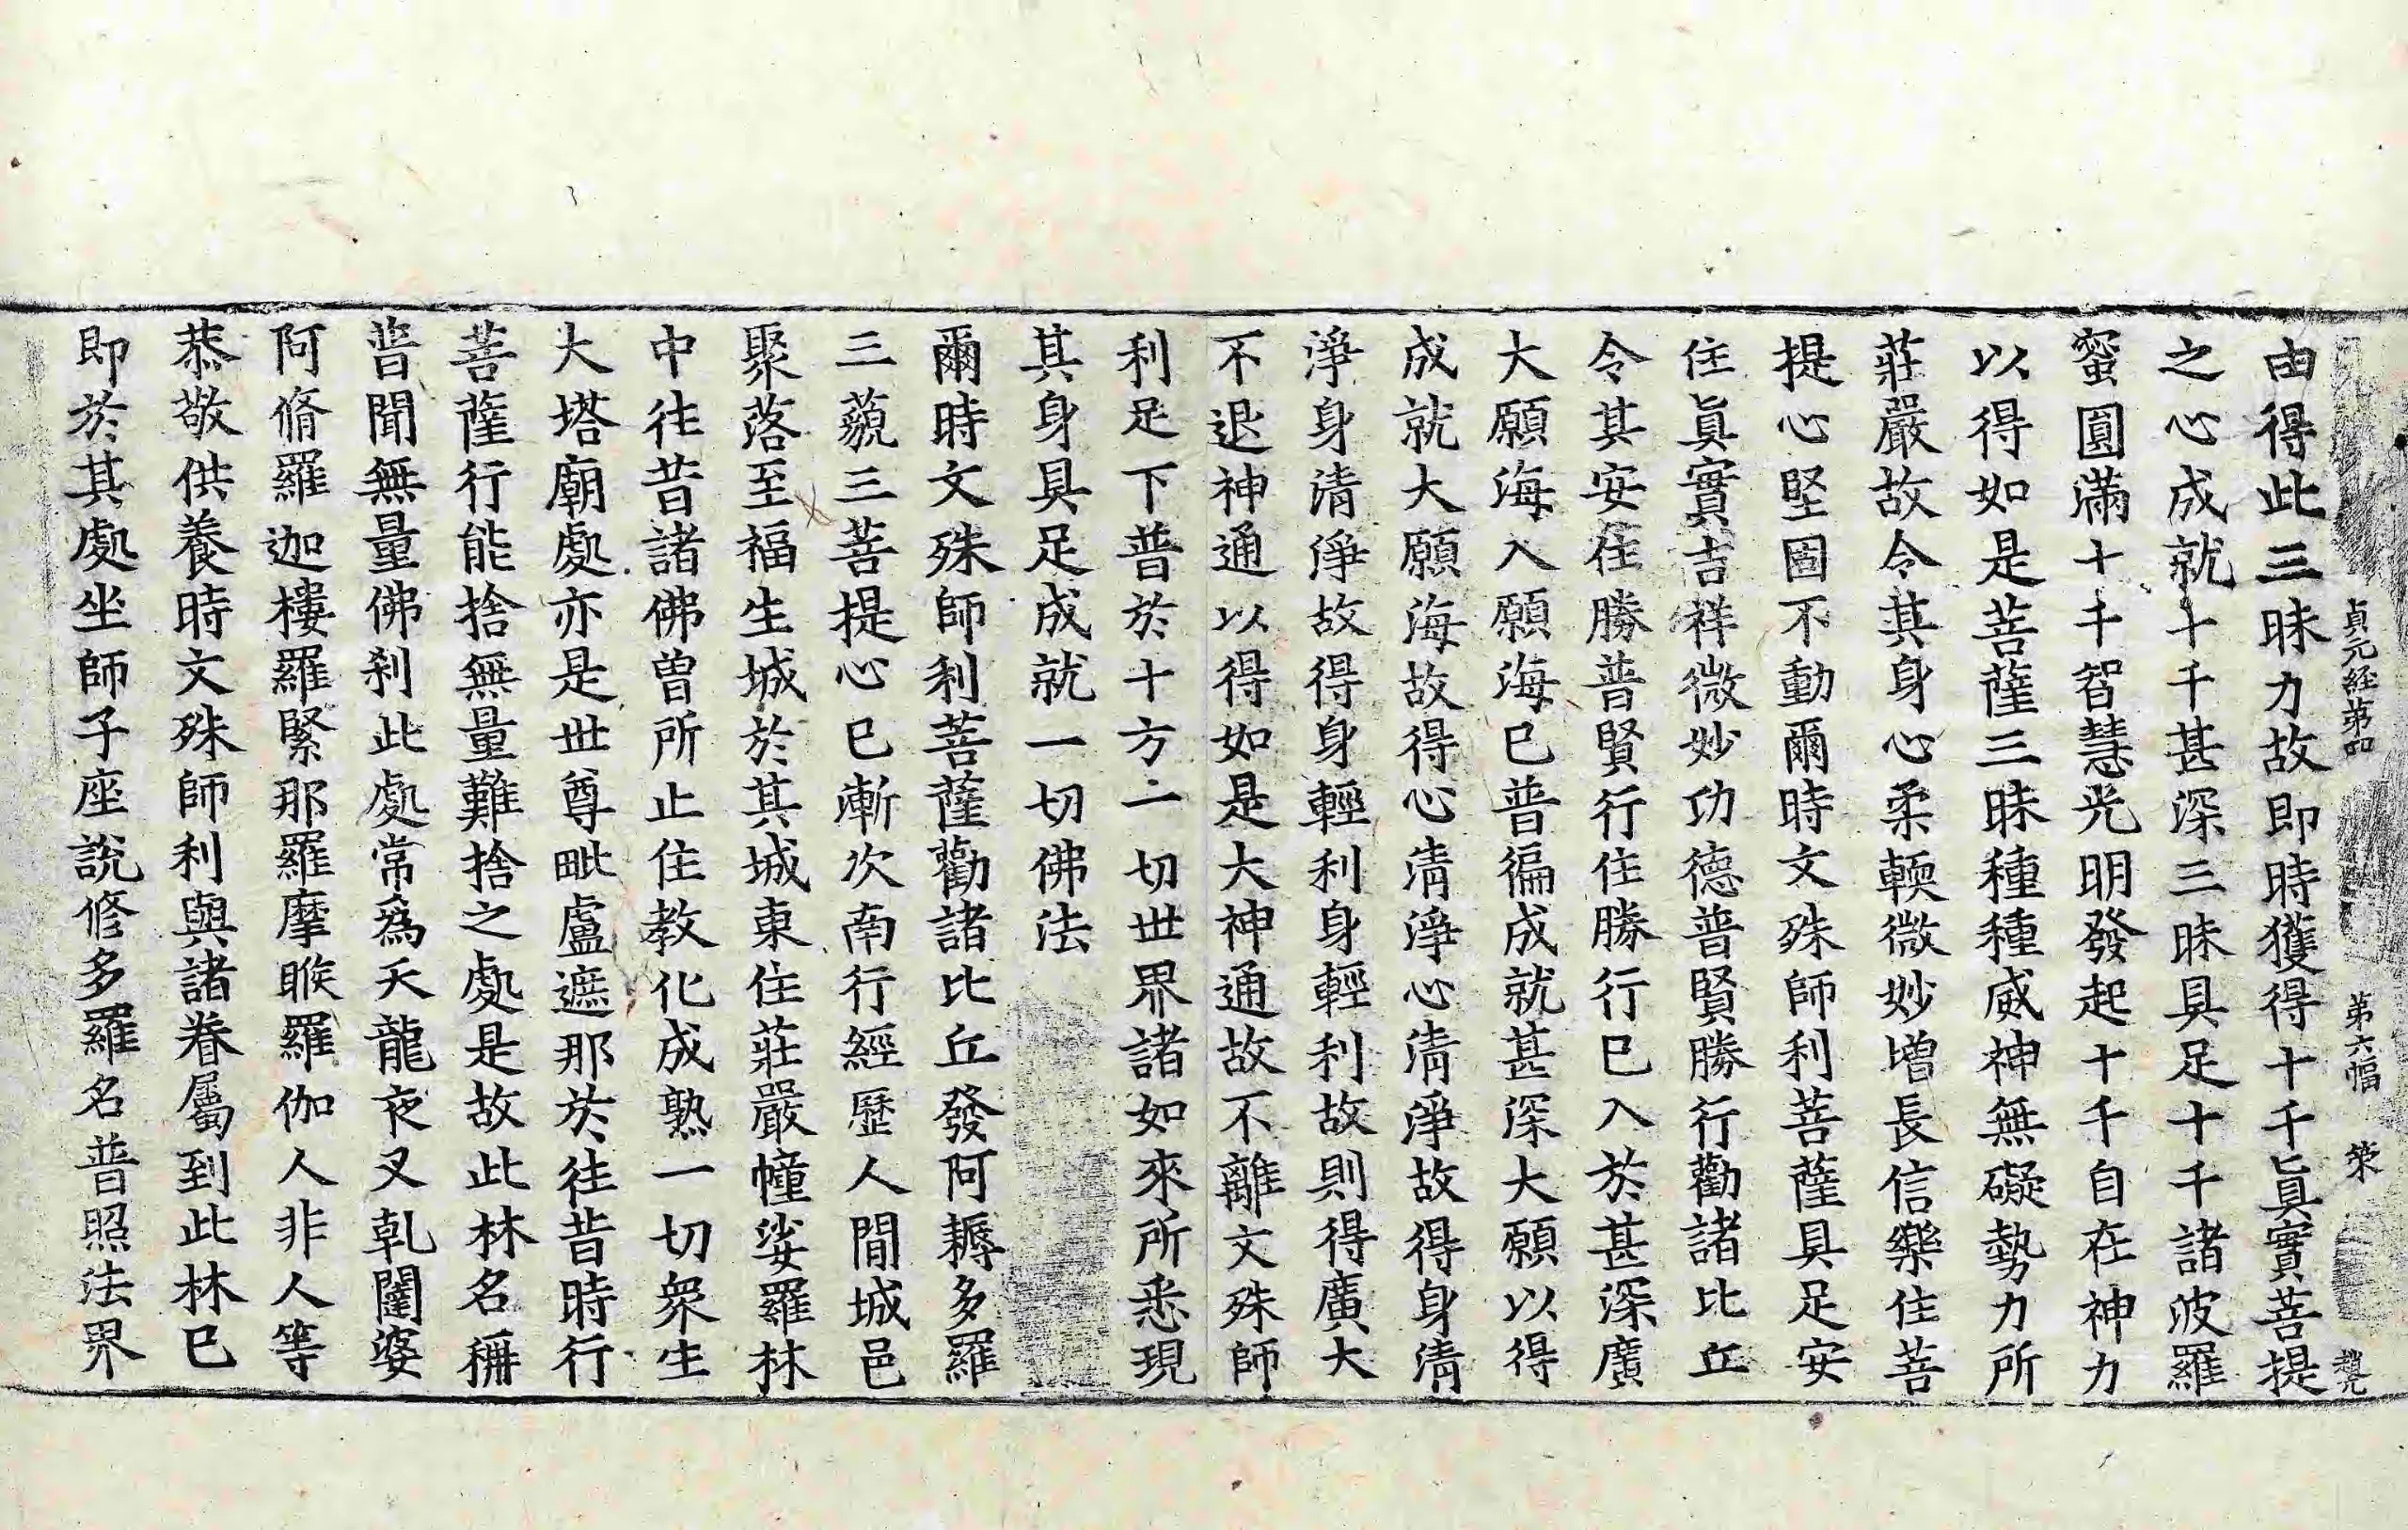 貞元経第四 第六幅 榮
由得此三昧力故即時獲得十千眞實菩提
之心成就十千甚深三昧具足十千諸波羅
蜜圓滿十千智慧光明發起十千自在神力
以得如是菩薩三昧種種威神無礙勢力所
莊嚴故令其身心柔輭微妙增長信樂住菩
提心堅固不動爾時文殊師利菩薩具足安
住眞實吉祥微妙功德普賢勝行勸諸比丘
令其安住勝普賢行住勝行已入於甚深廣
大願海入願海已普徧成就甚深大願以得
成就大願海故得心清淨心清淨故得身清
淨身清淨故得身輕利身輕利故則得廣大
不退神通以得如是大神通故不離文殊師
利足下普於十方一切世界諸如來所悉現
其身具足成就一切佛法
爾時文殊師利菩薩勸諸比丘發阿耨多羅
三藐三菩提心已漸次南行經歷人間城邑
聚落至福生城於其城東住莊嚴幢娑羅林
中往昔諸佛曾所止住教化成熟一切衆生
大塔廟處亦是世尊毗盧遮那於往昔時行
菩薩行能捨無量難捨之處是故此林名稱
普聞無量佛刹此處常爲天龍夜叉乹闥婆
阿脩羅迦樓羅緊那羅摩睺羅伽人非人等
恭敬供養時文殊師利與諸眷屬到此林已
即於其處坐師子座說修多羅名普照法界